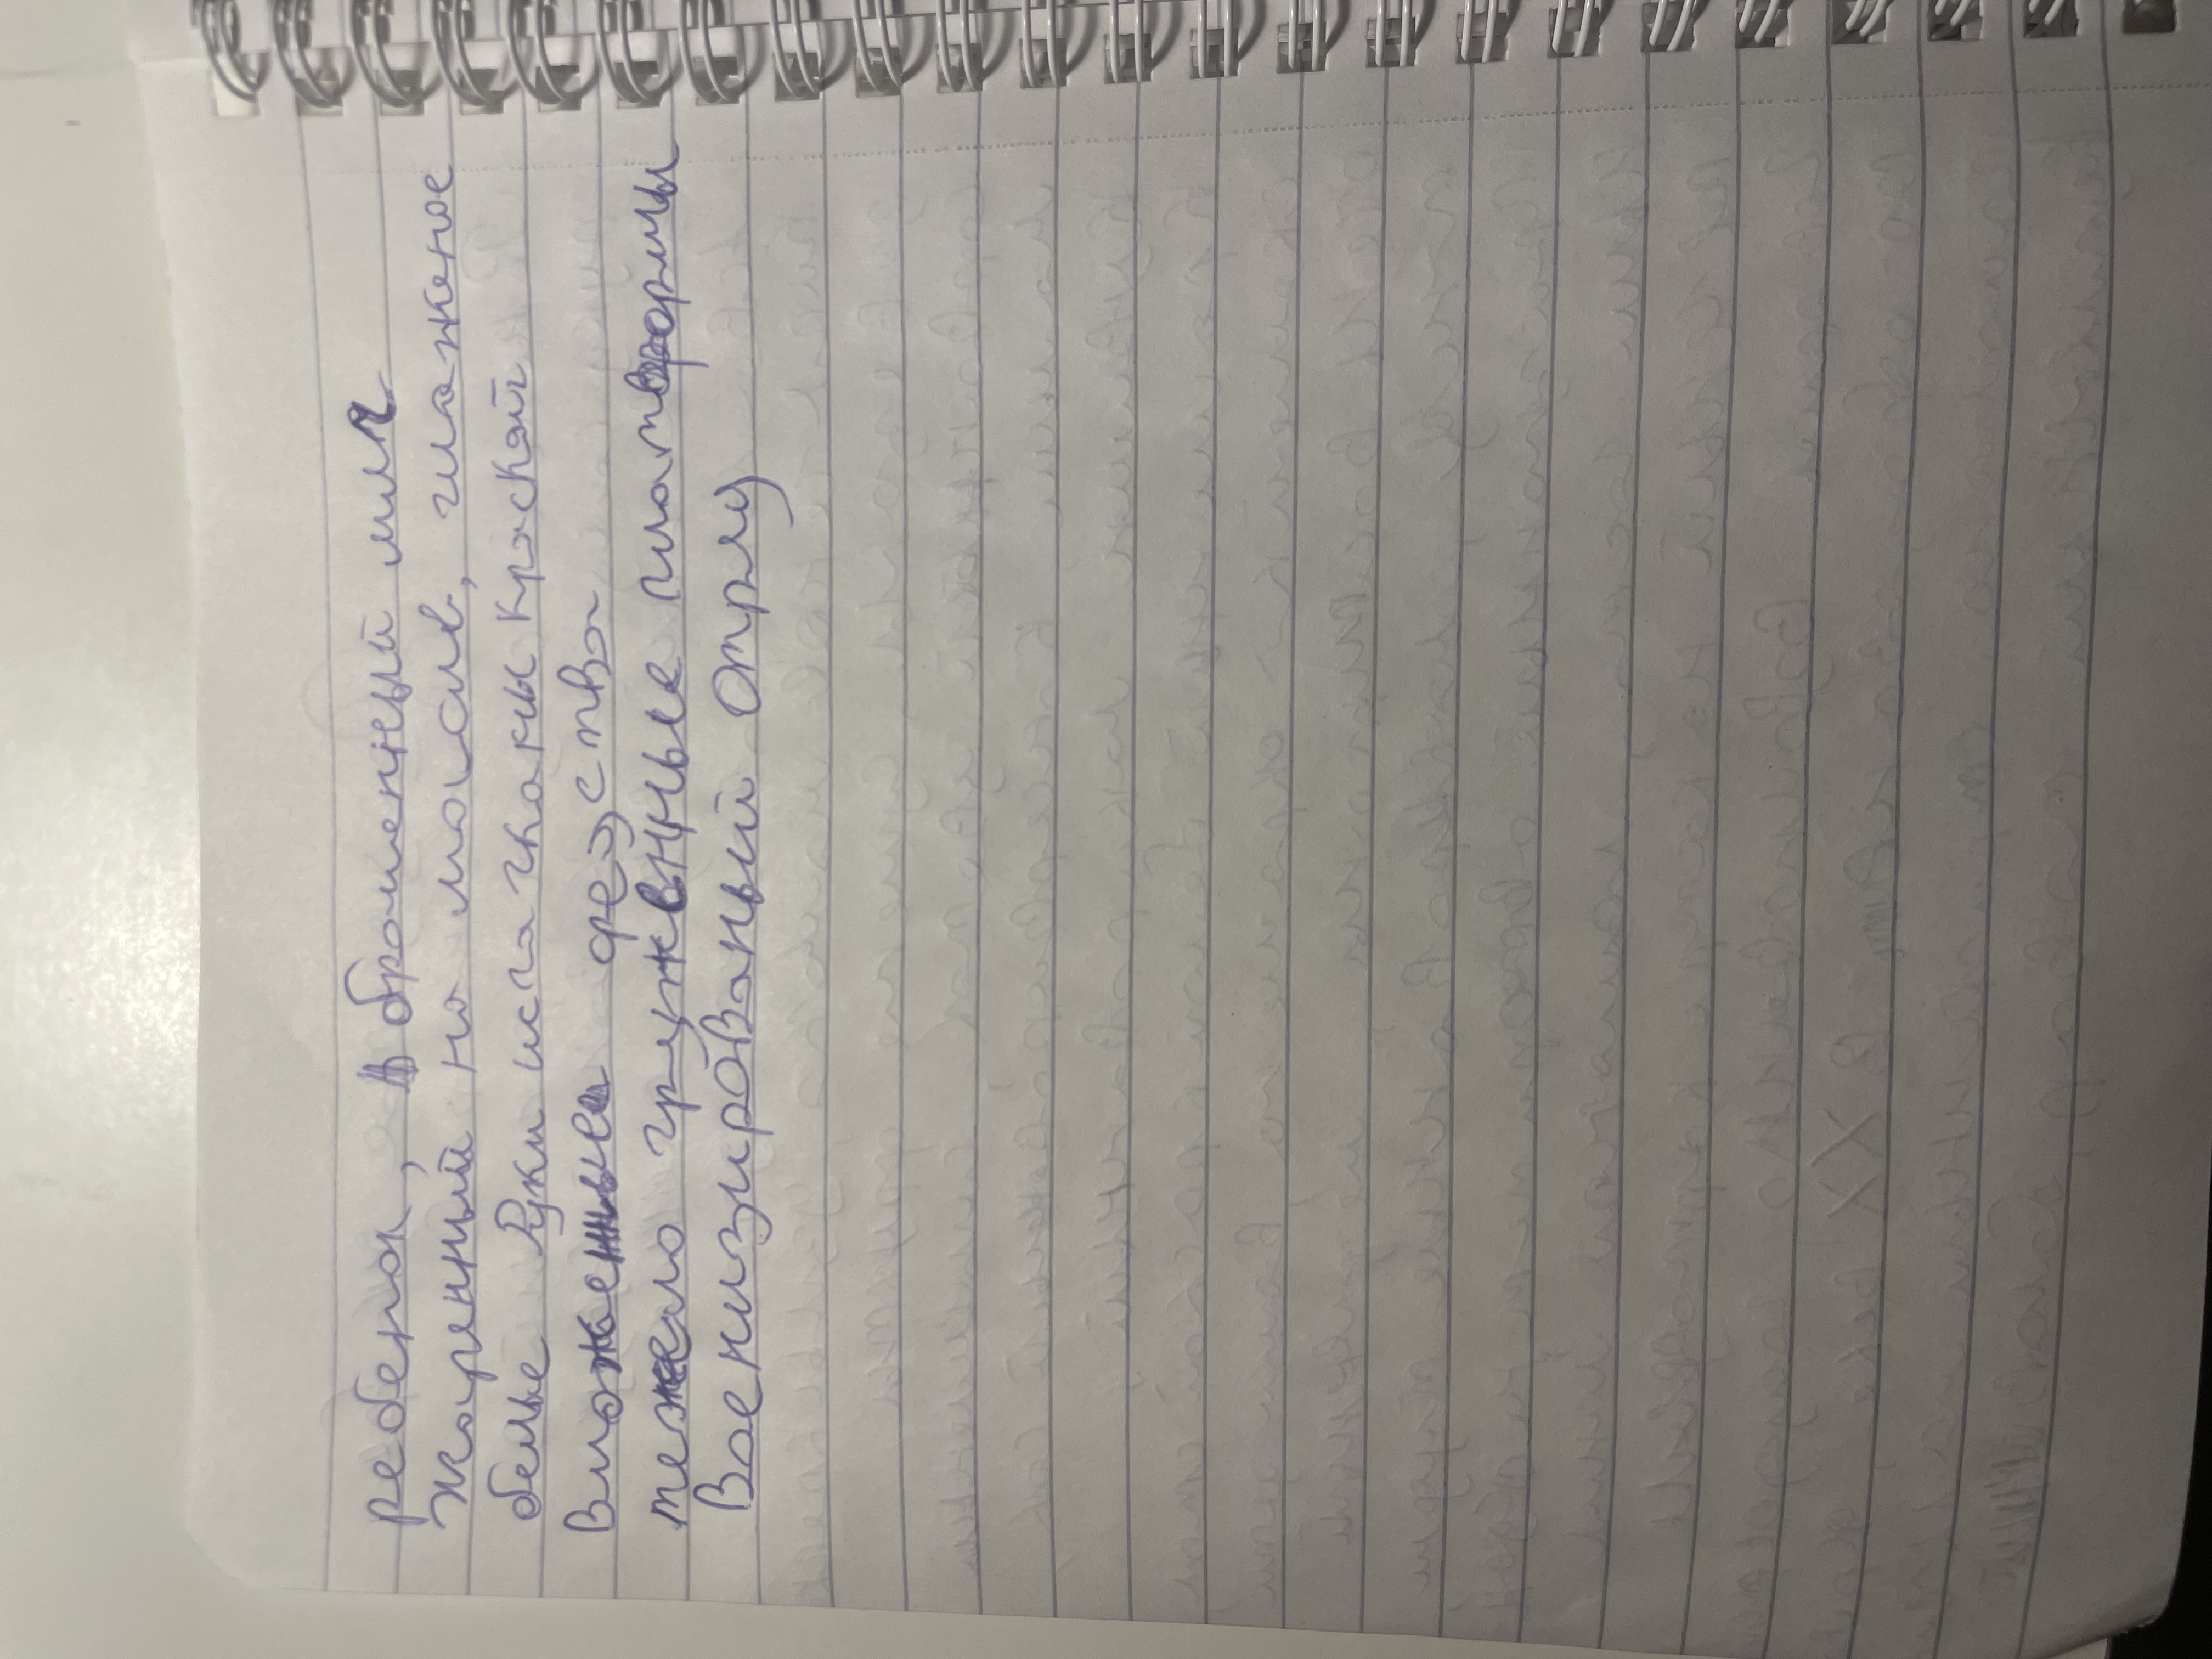 ребенок, брошенный мяч
Жаренный на масле, глаженое
белье Руки испачканы краской
Вложенные средства
тежело гружевнные платформы
Военизированый отряд